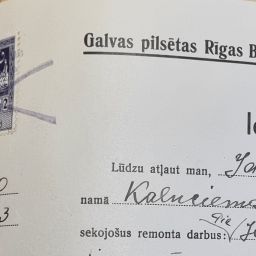 Galvas pilsētas Rīgas B
2
I
Lūdzu atļaut man,
0
namā Kalnciems
3
pie
sekojošus remonta darbus: